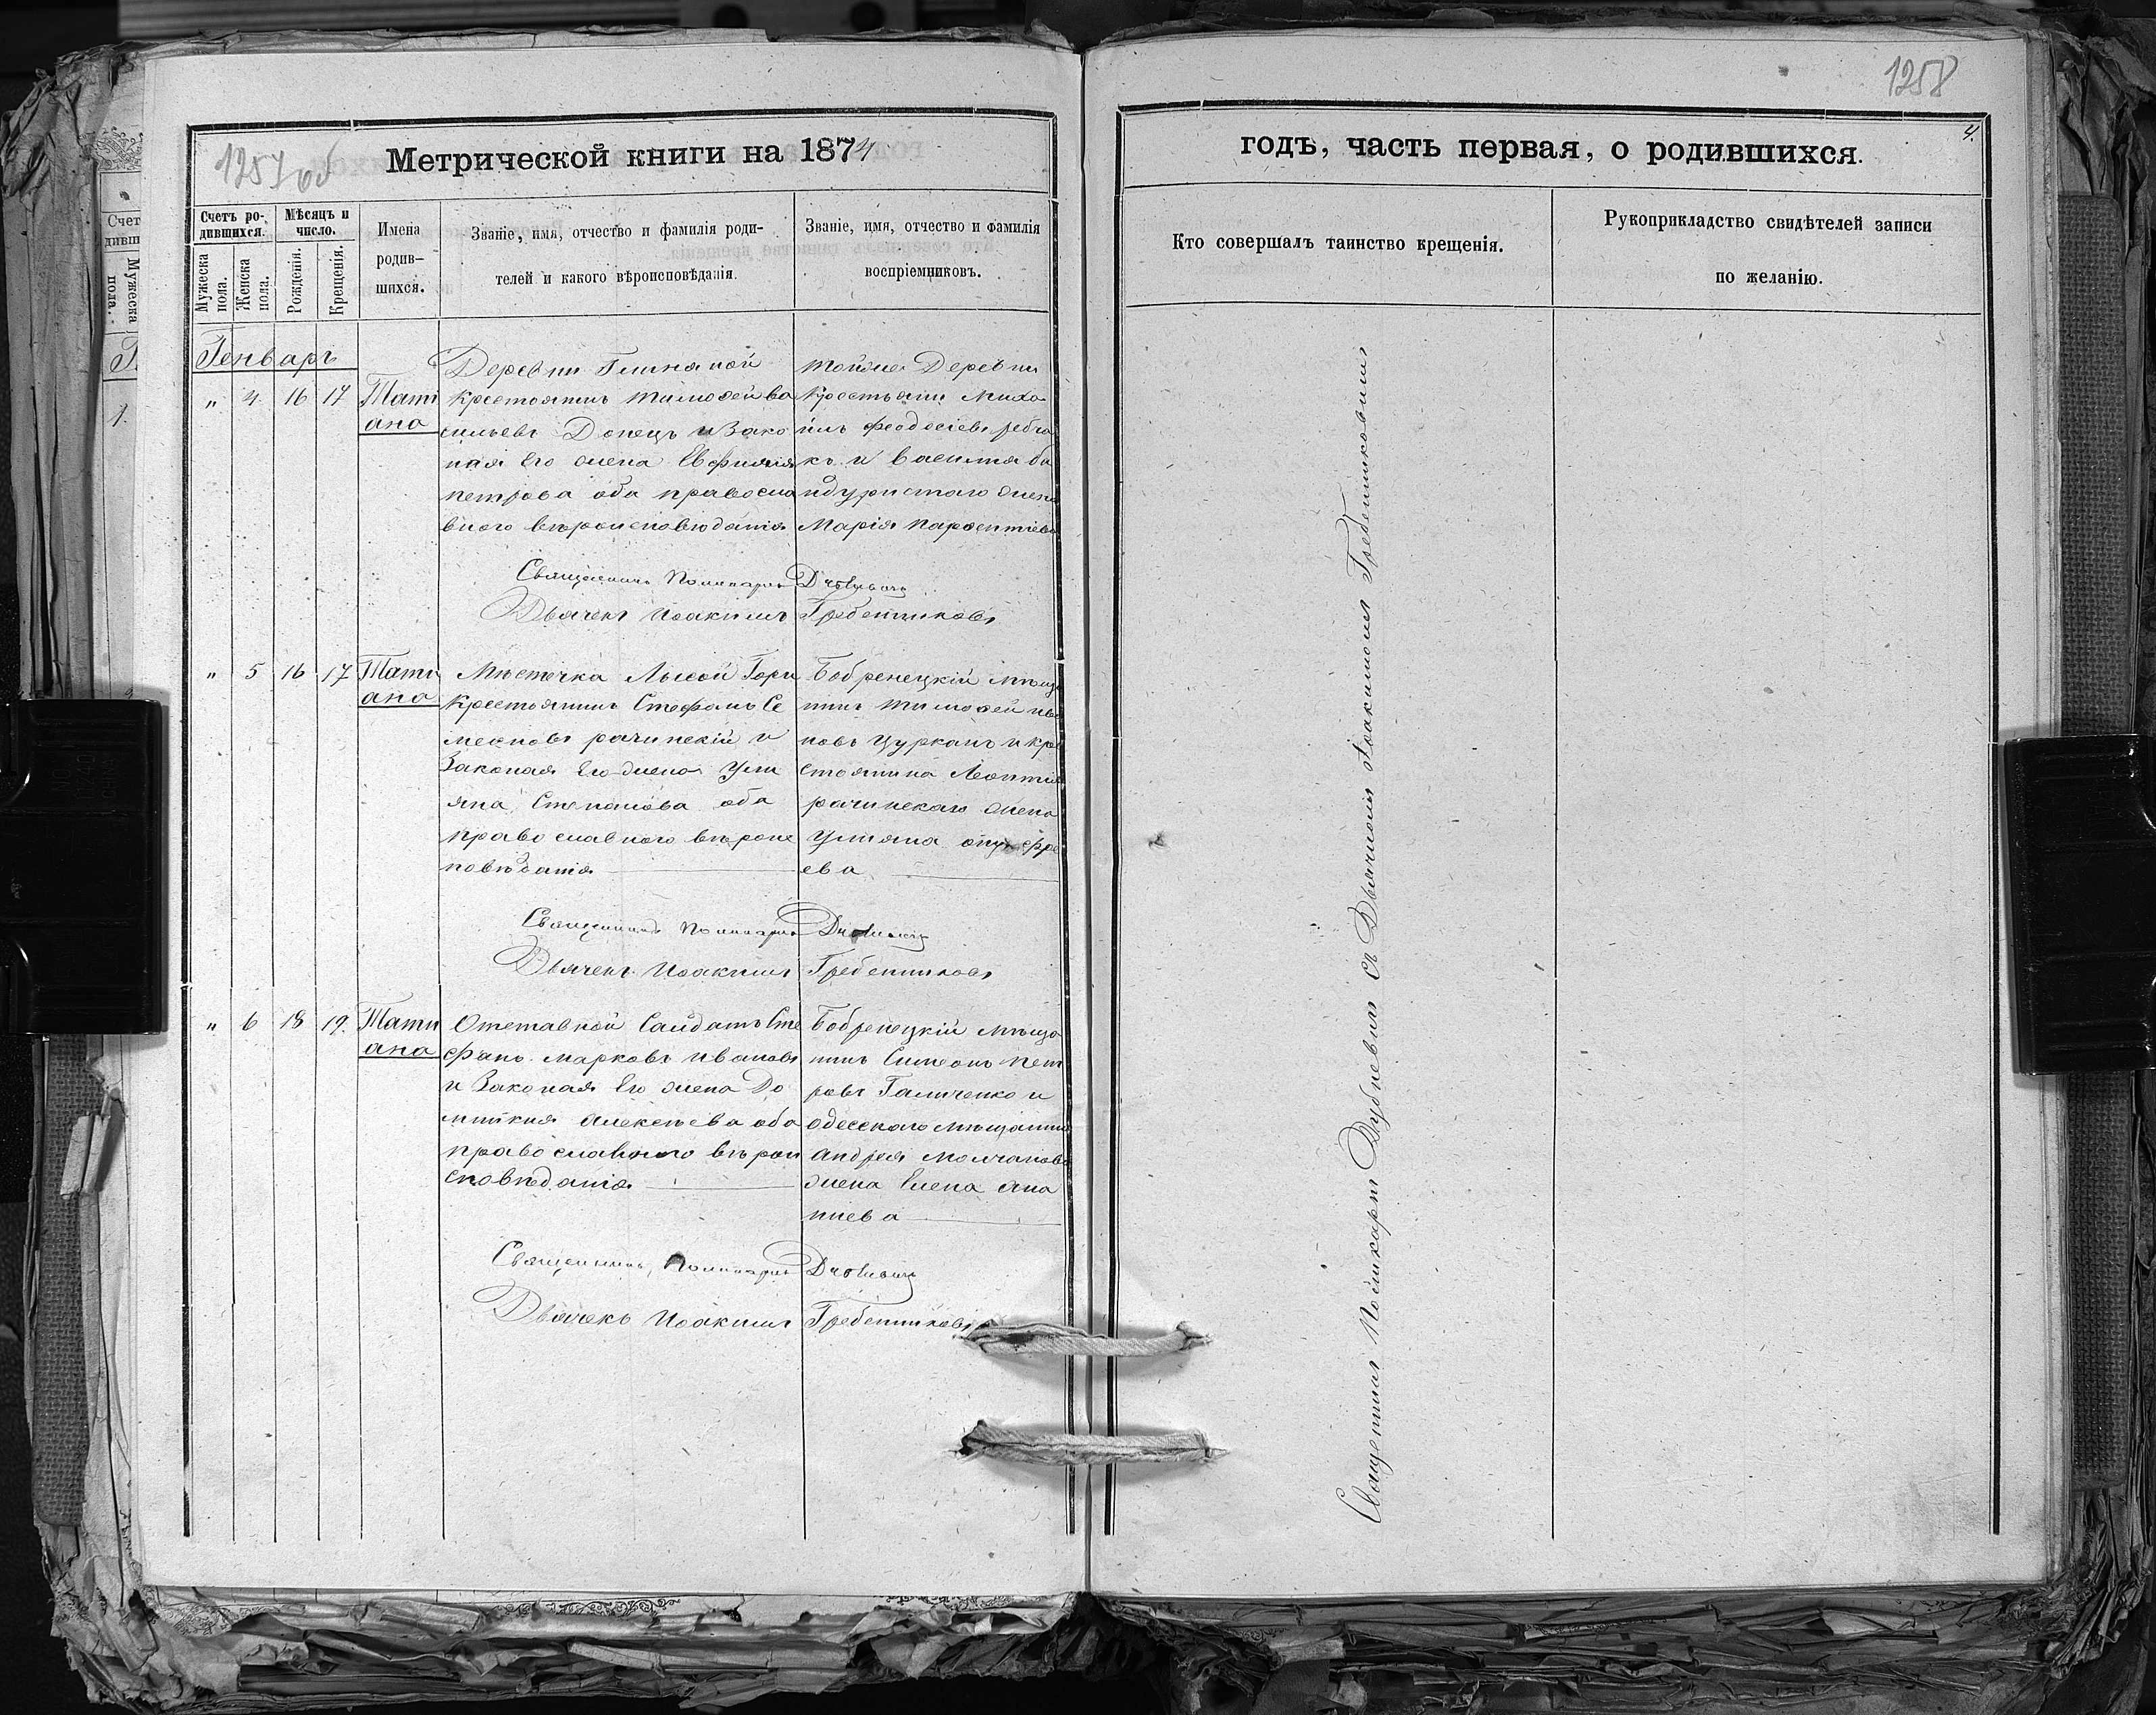 1257 об
Метрической книги на 1874
Счетъ ро-
дившихся.
Мѣсяцъ и
число.
Мужеска
пола.
Женска
пола.
Рожденія.
Крещенія.
Имена
родив-
шихся.
Званіе, имя, отчество и фамилія роди-
телей и какого вѣроисповѣданія.
Званіе, имя, отчество и фамилія
воспріемниковъ.
Генварь
" 4 16 17 Тати
ана
Деревни Глиняной
крестьянинъ Тимоѳей Ва
сильевъ Донецъ и Зако
ная Его жена Евфимія
Петрова оба православ
вного вѣроисповѣданія
тойже Деревни
Крестьяни Миха
илъ Феодосіевъ
къ и Василія Ба
ндуристого жена
Марія Парѳентіева
Священникъ Поликарпъ
Дьячекъ Иоакимъ Гребенниковъ
" 5 16 17 Тати
ана
Мѣстечка Лысой Гори
Крестьянинъ Стефанъ Се
меновъ рачинскій и
Законая Его жена Ули
яна Степанова оба
православного вѣроис
повѣданія
Бобренецкій мѣща
нинъ Тимоѳей Ива
новъ Цурканъ и кре
стьянина Леонтія
рачинскаго жена
Улияна
ева
Священникъ Поликарпъ
Дьячекъ Иоакимъ Гребенниковъ
" 6 18 19. Тати
ана
Отставной Салдатъ Сте
фанъ Марковъ Ивановъ
и Законая Его жена До
мникия Алексѣева оба
православного вѣрои
сповѣданія
Бобренецкій мѣща
нинъ Симеонъ Пет
ровъ Галиченко и
одесскаго мѣщанина
Андрея Молчанова
жена Елена Ана
ниева
Священникъ Поликарпъ
Дьячекъ Иоакимъ Гребенниковъ
1258
4.
годъ, часть первая, о родившихся.
Кто совершалъ таинство крещенія.
Рукоприкладство свидѣтелей записи
по желанію.
Священникъ Поликарпъ Дубневичъ съ Дьячкомъ Иоакимомъ Гребенниковымъ
Счет
дивш
Мужеска
пола.
1.